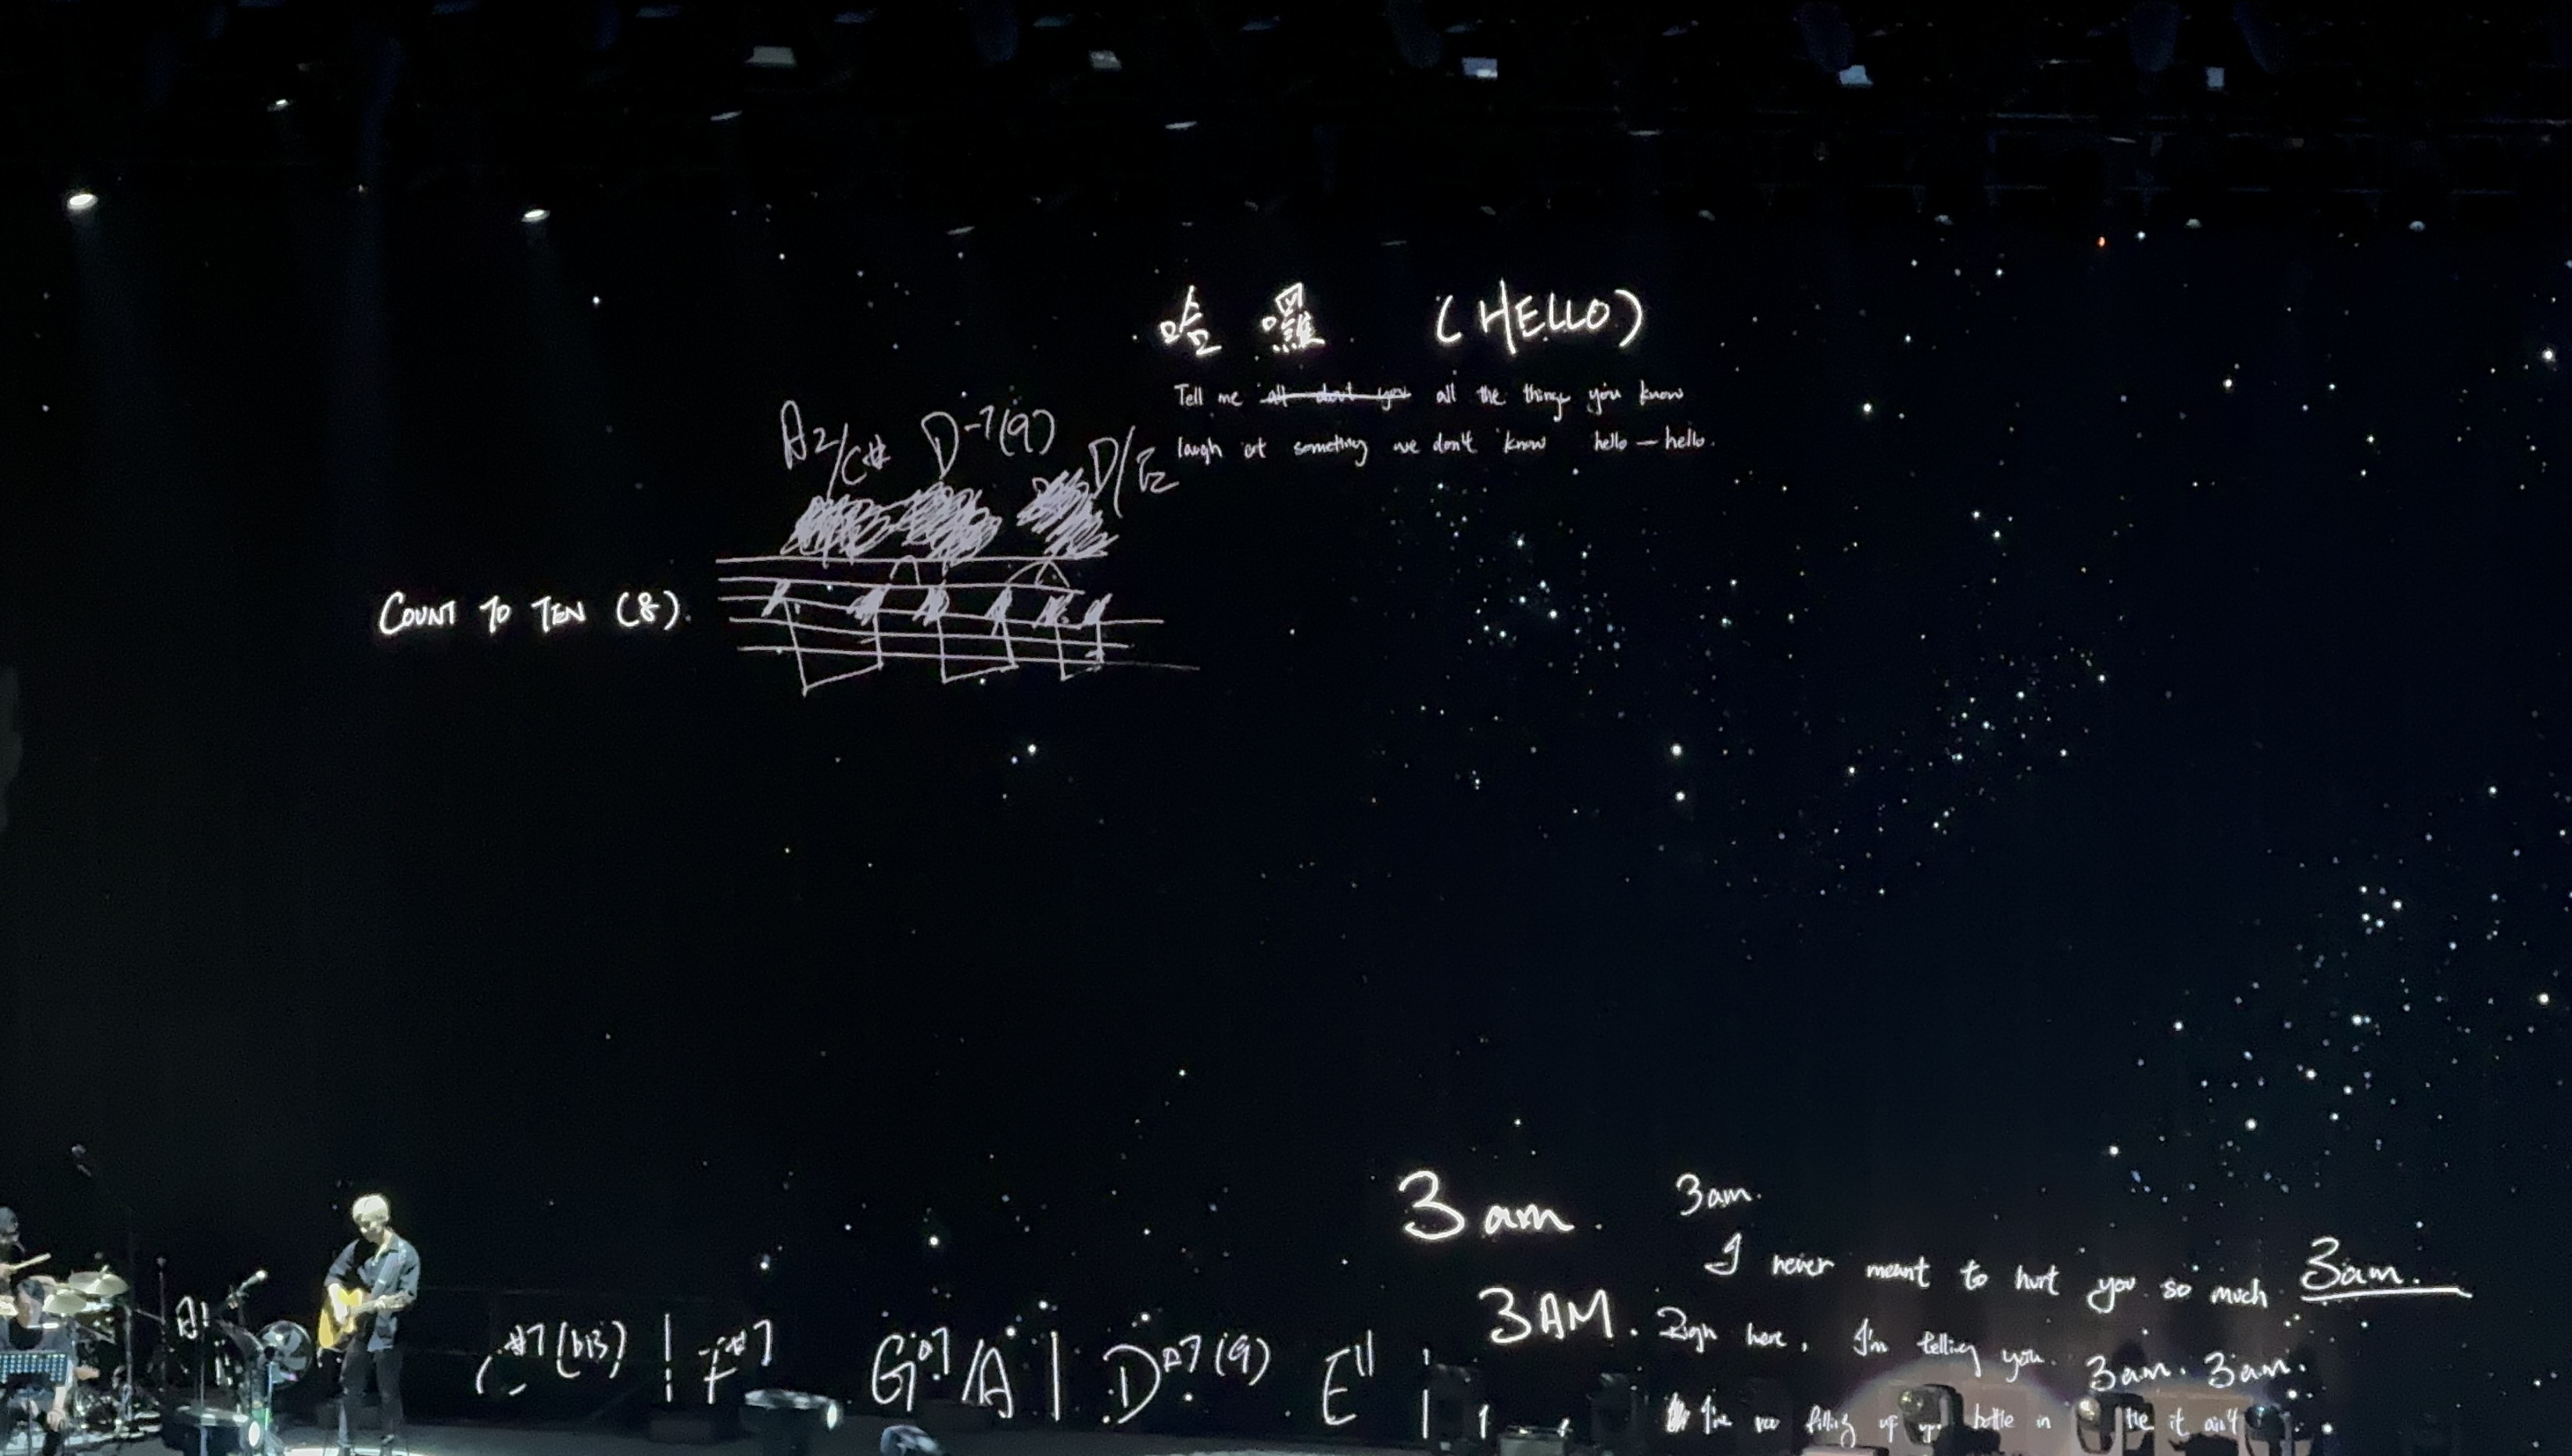 哈囉 (HELLO)
Tell me all about you all the things you know
laugh at something we don't know hello — hello.
A2/C# D-7(9) D/E
COUNT TO TEN (8).
3am. 3am.
I never meant to hurt you so much 3am.
3AM. Righ here, I'm telling you. 3am. 3am.
C#7(b13) | F#7 G△7/A | D△7(9) E11 |
filling up bottle in it ain't